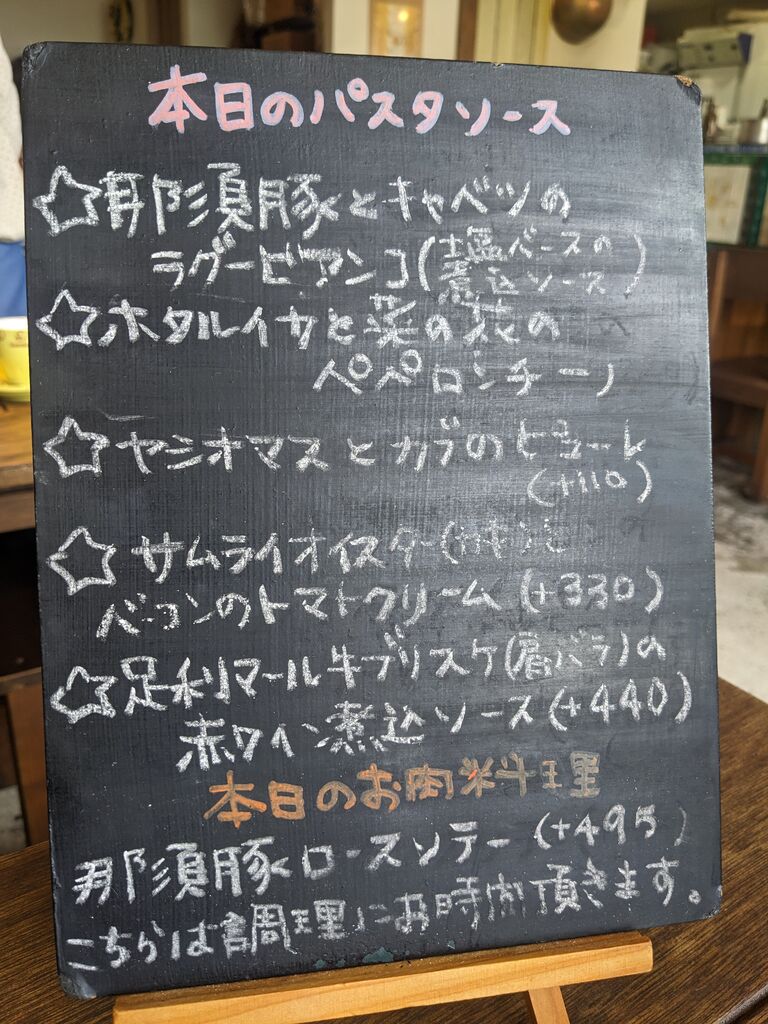 本日のパスタソース
☆那須豚とキャベツの
ラグービアンコ(塩ベースの煮込ソース)
☆ホタルイカと菜の花の
ペペロンチーノ
☆ヤシオマスとカブのピューレ
(+110)
☆サムライオイスター(かき)と
ベーコンのトマトクリーム(+330)
☆足利マール牛ブリスケ(肩バラ)の
赤ワイン煮込ソース(+440)
本日のお肉料理
那須豚ロースソテー(+495)
こちらは調理にお時間頂きます。